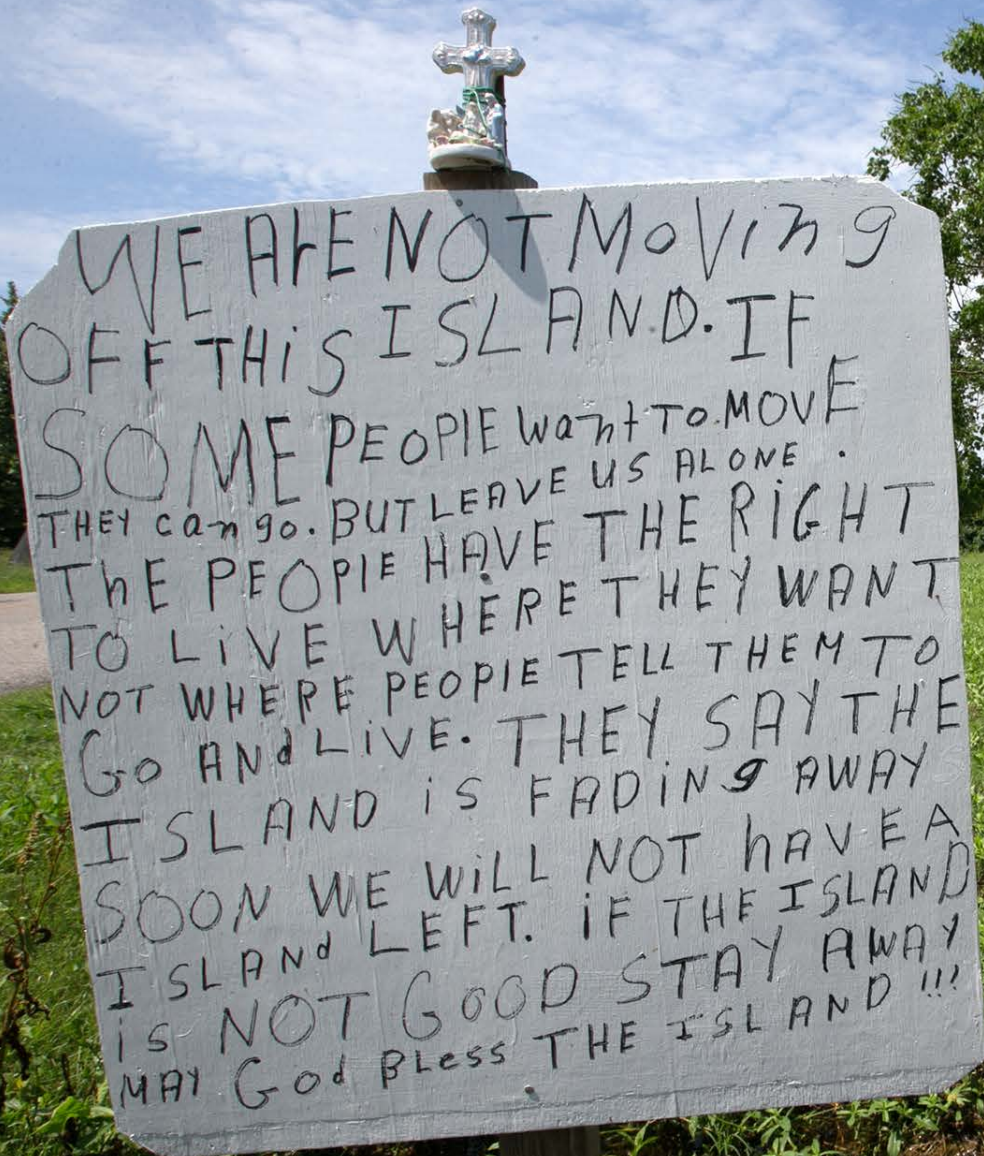 WE ArE NOT MoVing
OFF THiS ISLAND. IF
SOME PEOPlE Want To. MOVE
THEY can go. BUT LEAVE US ALONE .
ThE PEOPlE HAVE THE RiGHT
TO LiVE WHERE THEY WANT
NOT WHERE PEOPlE TELL THEM TO
Go ANd LiVE. THEY SAY THE
ISLAND iS FADiNg AWAY
SOON WE WiLL NOT hAVE A
ISLANd LEFT. iF THE ISLAND
iS NOT GOOD STAY AWAY
MAY God BLess THE ISLAND !!!